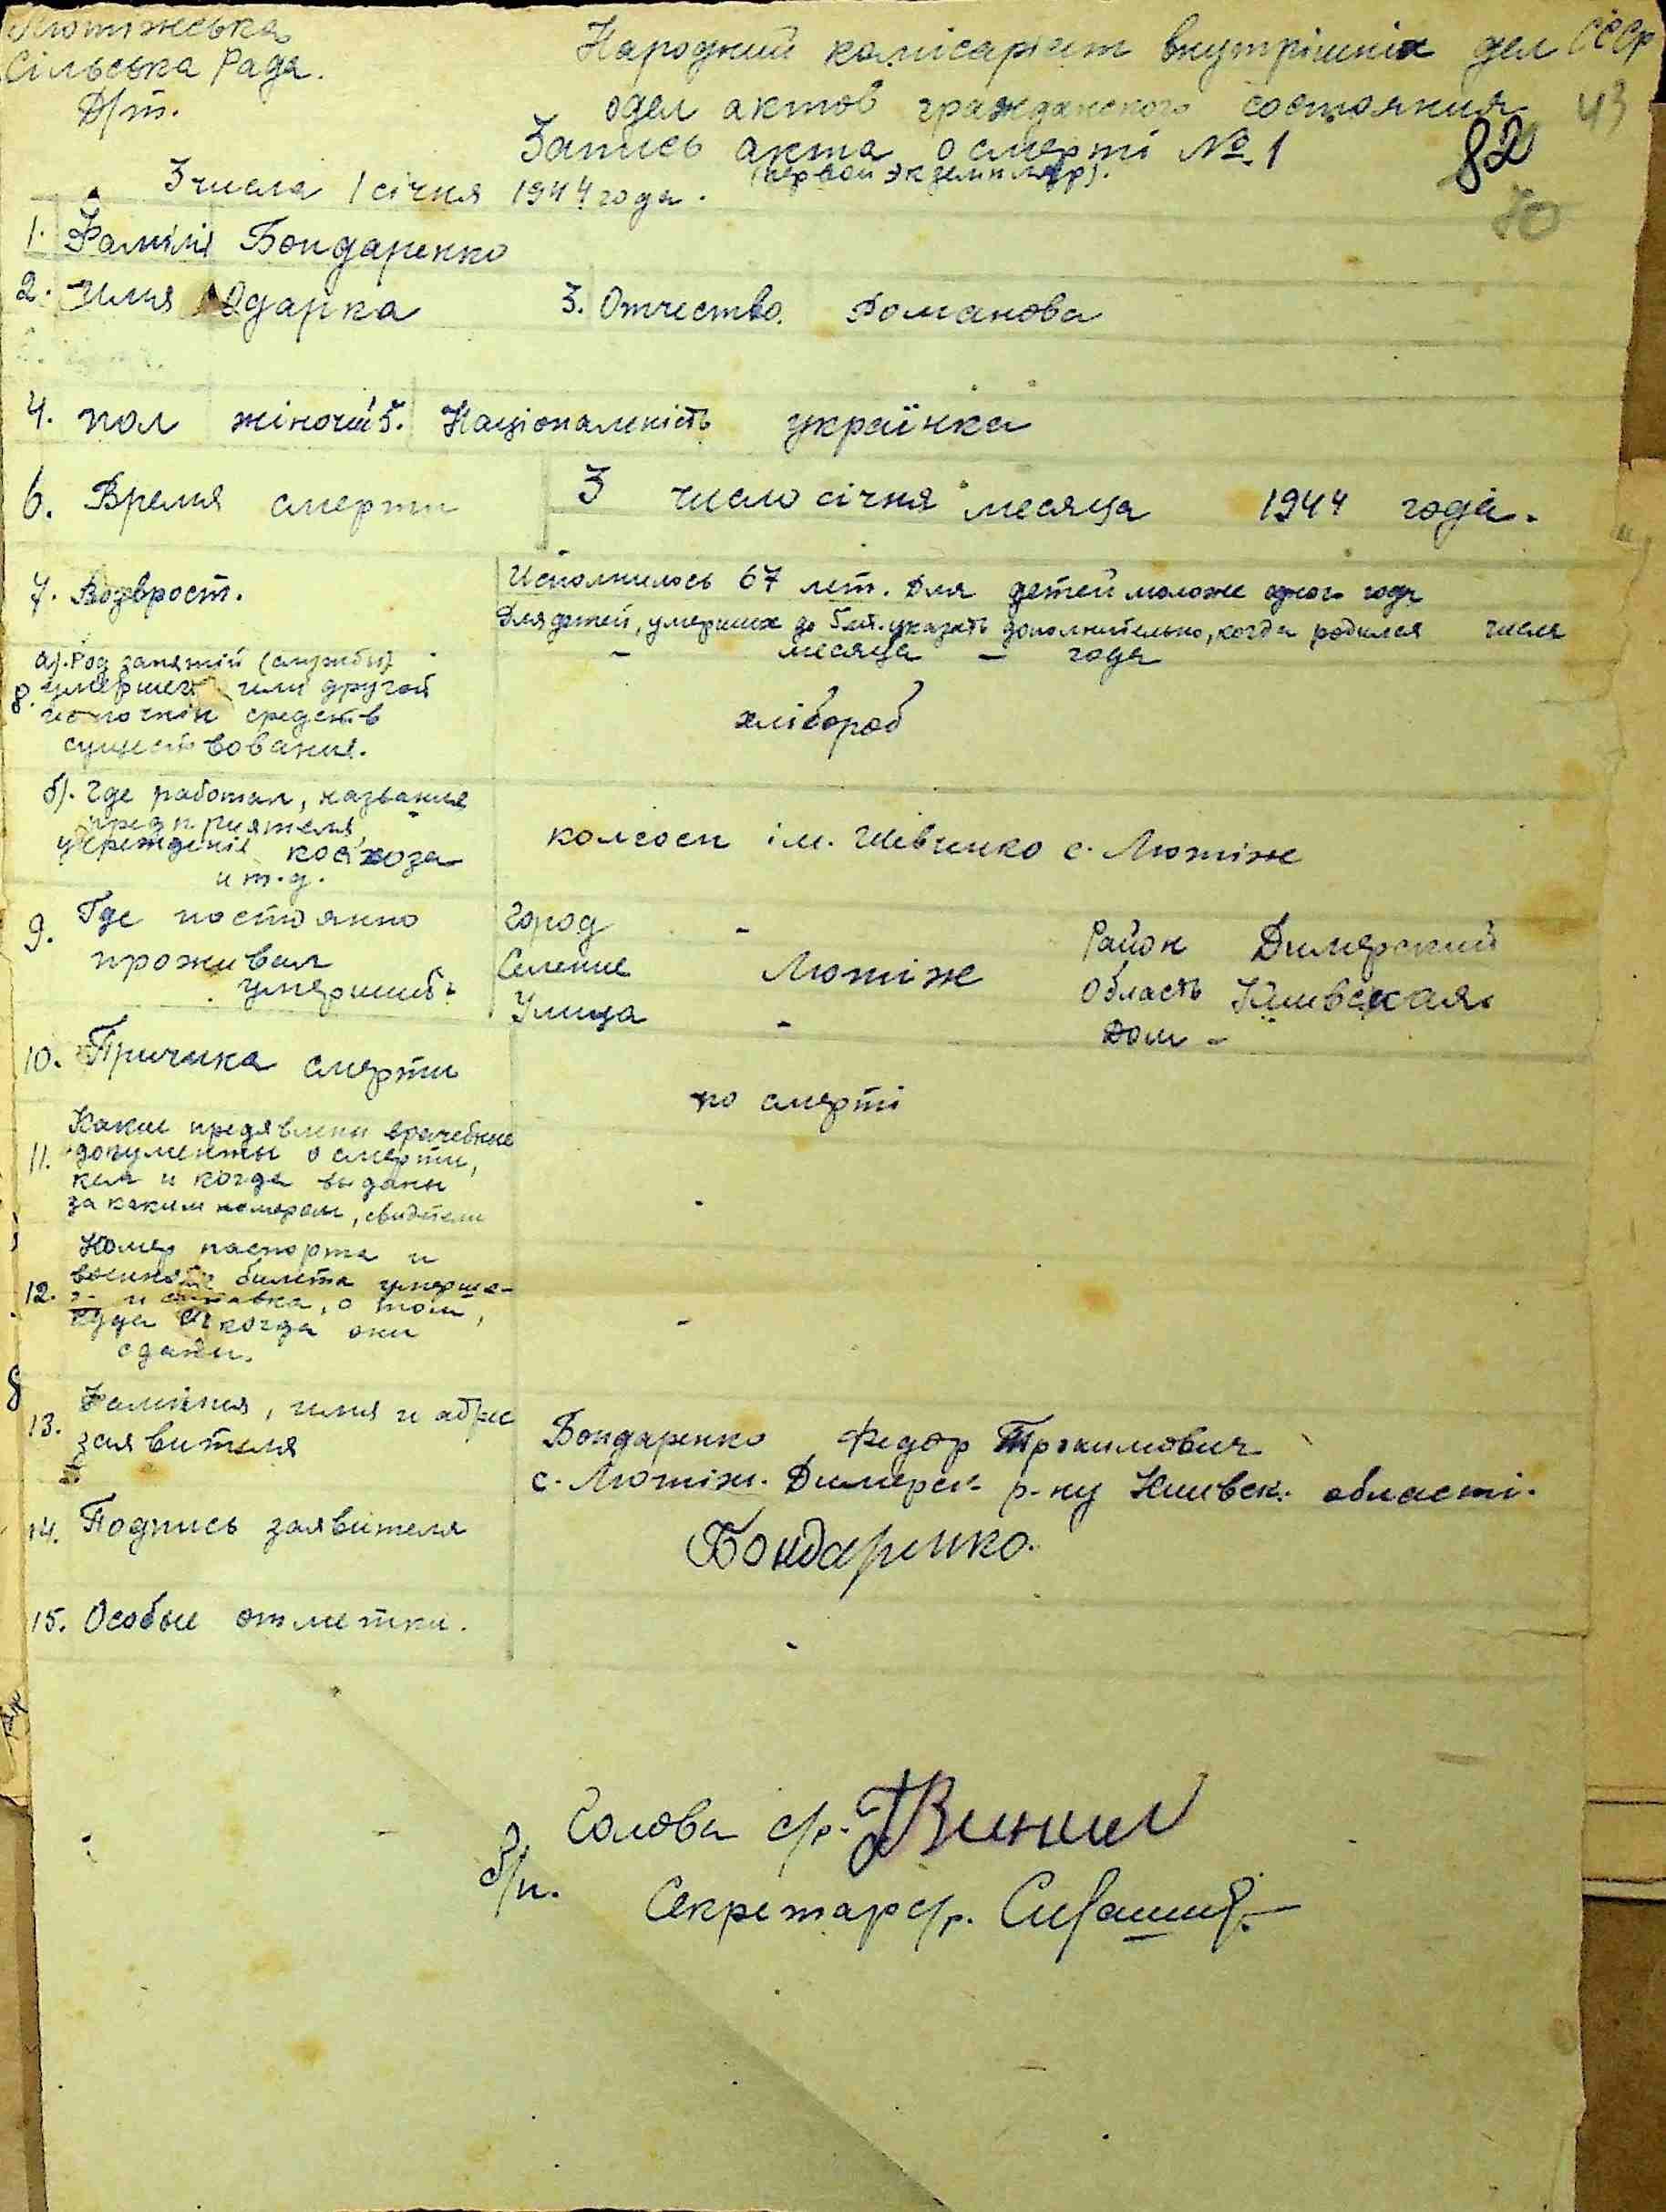 Лютіжська
Сільська Рада.
Народний комісаріат внутрішніх дел СССР
одел актов гражданского состояния 43
Д/т.
Запись акта о смерті № 1 82
(первой экземпляр).
3 числа 1 січня 1944 года. 70
1. Фамілія Бондаренко
2. Имя Одарка 3. Отчество Романова
4. пол жіночий 5. Національність українка
6. Время смерти 3 число січня месяца 1944 года.
7. Возврост. Исполнилось 67 лет. Для детей моложе одного года
Для детей, умерших до 5 лет. указать дополнительно, когда родился числа
- месяца - года
8. а). Род занятий (службы)
умершего или другой
источнік средств
существования.
хлібороб
б). Где работал, название
предприятия,
учреждение колхоза
и т.д.
колгосп ім. Шевченко с. Лютіж
9. Где постоянно
проживал
умерший
Город - Район Димерский
Селение Лютіж Область Киивская
Улица - Дом -
10. Причина смерти
по смерті
11. Какие предявлены врачебные
документы о смерти,
кем и когда выданы
за каким номером, свидетели
-
12. Номер паспорта и
военного билета умерше-
го и отметка, о том,
куда и когда они
сданы.
-
13. Фамилия, имя и адрес
заявителя
Бондаренко Федор Трохимович
с. Лютіж. Димерск. р-ну Киивск. області.
14. Подпись заявителя
Бондаренко.
15. Особые отметки.
-
Голова с/р.
З/п.
Секретар с/р.